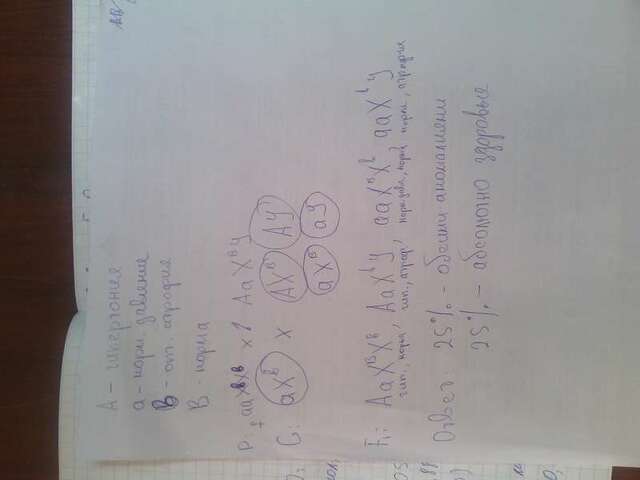 А - гипертония
а - норм. давление
в - от. атрофия
В - норма
P: ♀ aaXᵇXᵇ x ♂ AaXᴮY
G: aXᵇ x AXᴮ AY
aXᴮ aY
F₁: AaXᴮXᵇ, AaXᵇY, aaXᴮXᵇ, aaXᵇY
гип., норма, гип., атроф., норм. давл., норма, норм., атрофия
Ответ: 25% - обоими аномалиями
25% - абсолютно здоровые